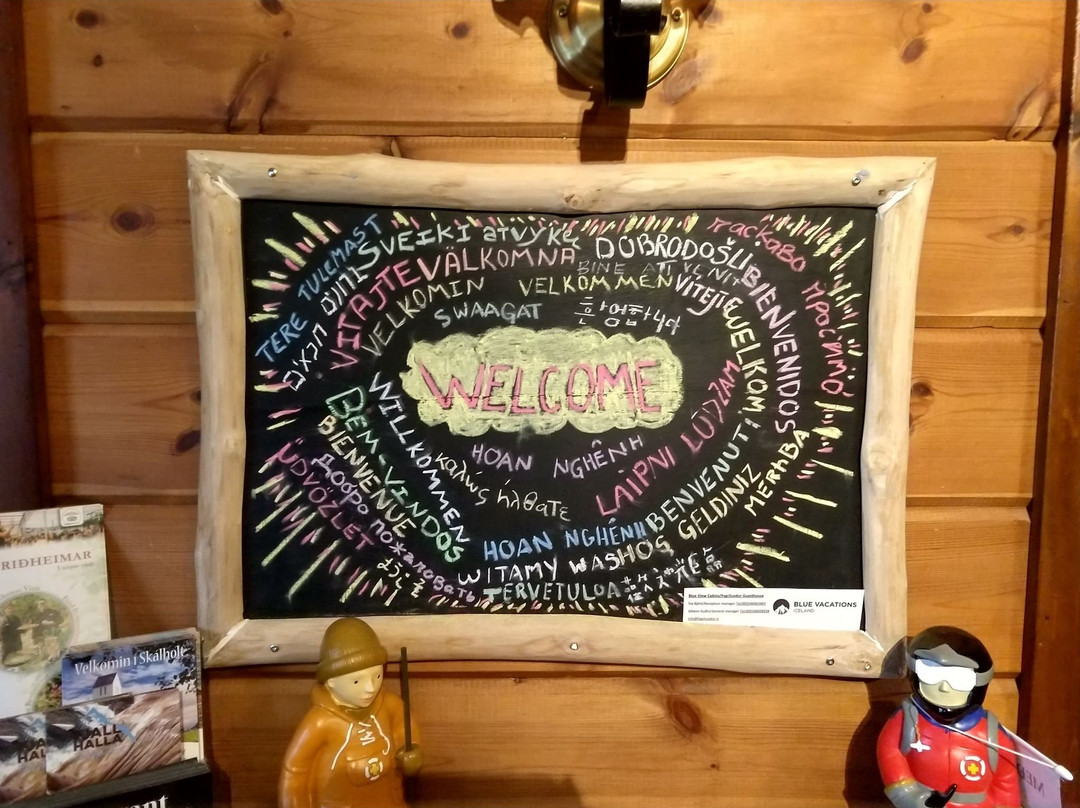 TERE TULEMAST
SVEIKI atvykę
DOBRODOŠLI
ласкаво
просимо
ברוכים הבאים
VITAJTE
VÄLKOMNA
BINE ATI VENIT
BIENVENIDOS
VELKOMIN
VELKOMMEN
VITEJTE
WELKOM
SWAAGAT
환영합니다
WELCOME
WILLKOMMEN
BEM-VINDOS
BIENVENUE
ÜDVÖZLET
Добро пожаловать
HOAN NGHÊNH
LAIPNI LŪDZAM
καλώς ήλθατε
BENVENUTI
GELDINIZ
MERHBA
HOAN NGHÊNH
WITAMY WASHOS
TERVETULOA
Blue View Cabins/Fagrilundur Guesthouse
BLUE VACATIONS
ICELAND
RIDHEIMAR
Velkomin í Skálholt
FJALL
HALLA